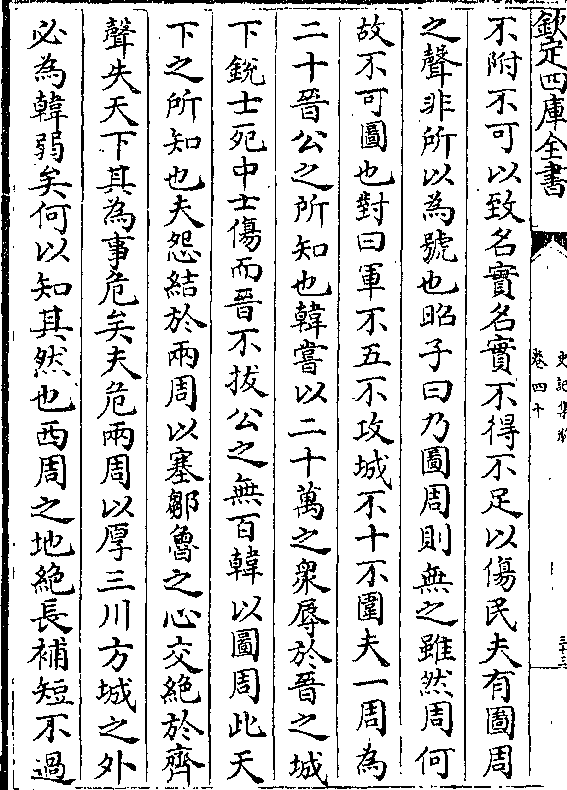 欽定四庫全書
史記集解
卷四十
不附不可以致名實名實不得不足以傷民夫有圖周
之聲非所以為號也昭子曰乃圖周則無之雖然周何
故不可圖也對曰軍不五不攻城不十不圍夫一周為
二十晉公之所知也韓嘗以二十萬之衆辱於晉之城
下銳士死中士傷而晉不拔公之無百韓以圖周此天
下之所知也夫怨結於兩周以塞鄒魯之心交絶於齊
聲失天下其為事危矣夫危兩周以厚三川方城之外
必為韓弱矣何以知其然也西周之地絶長補短不過